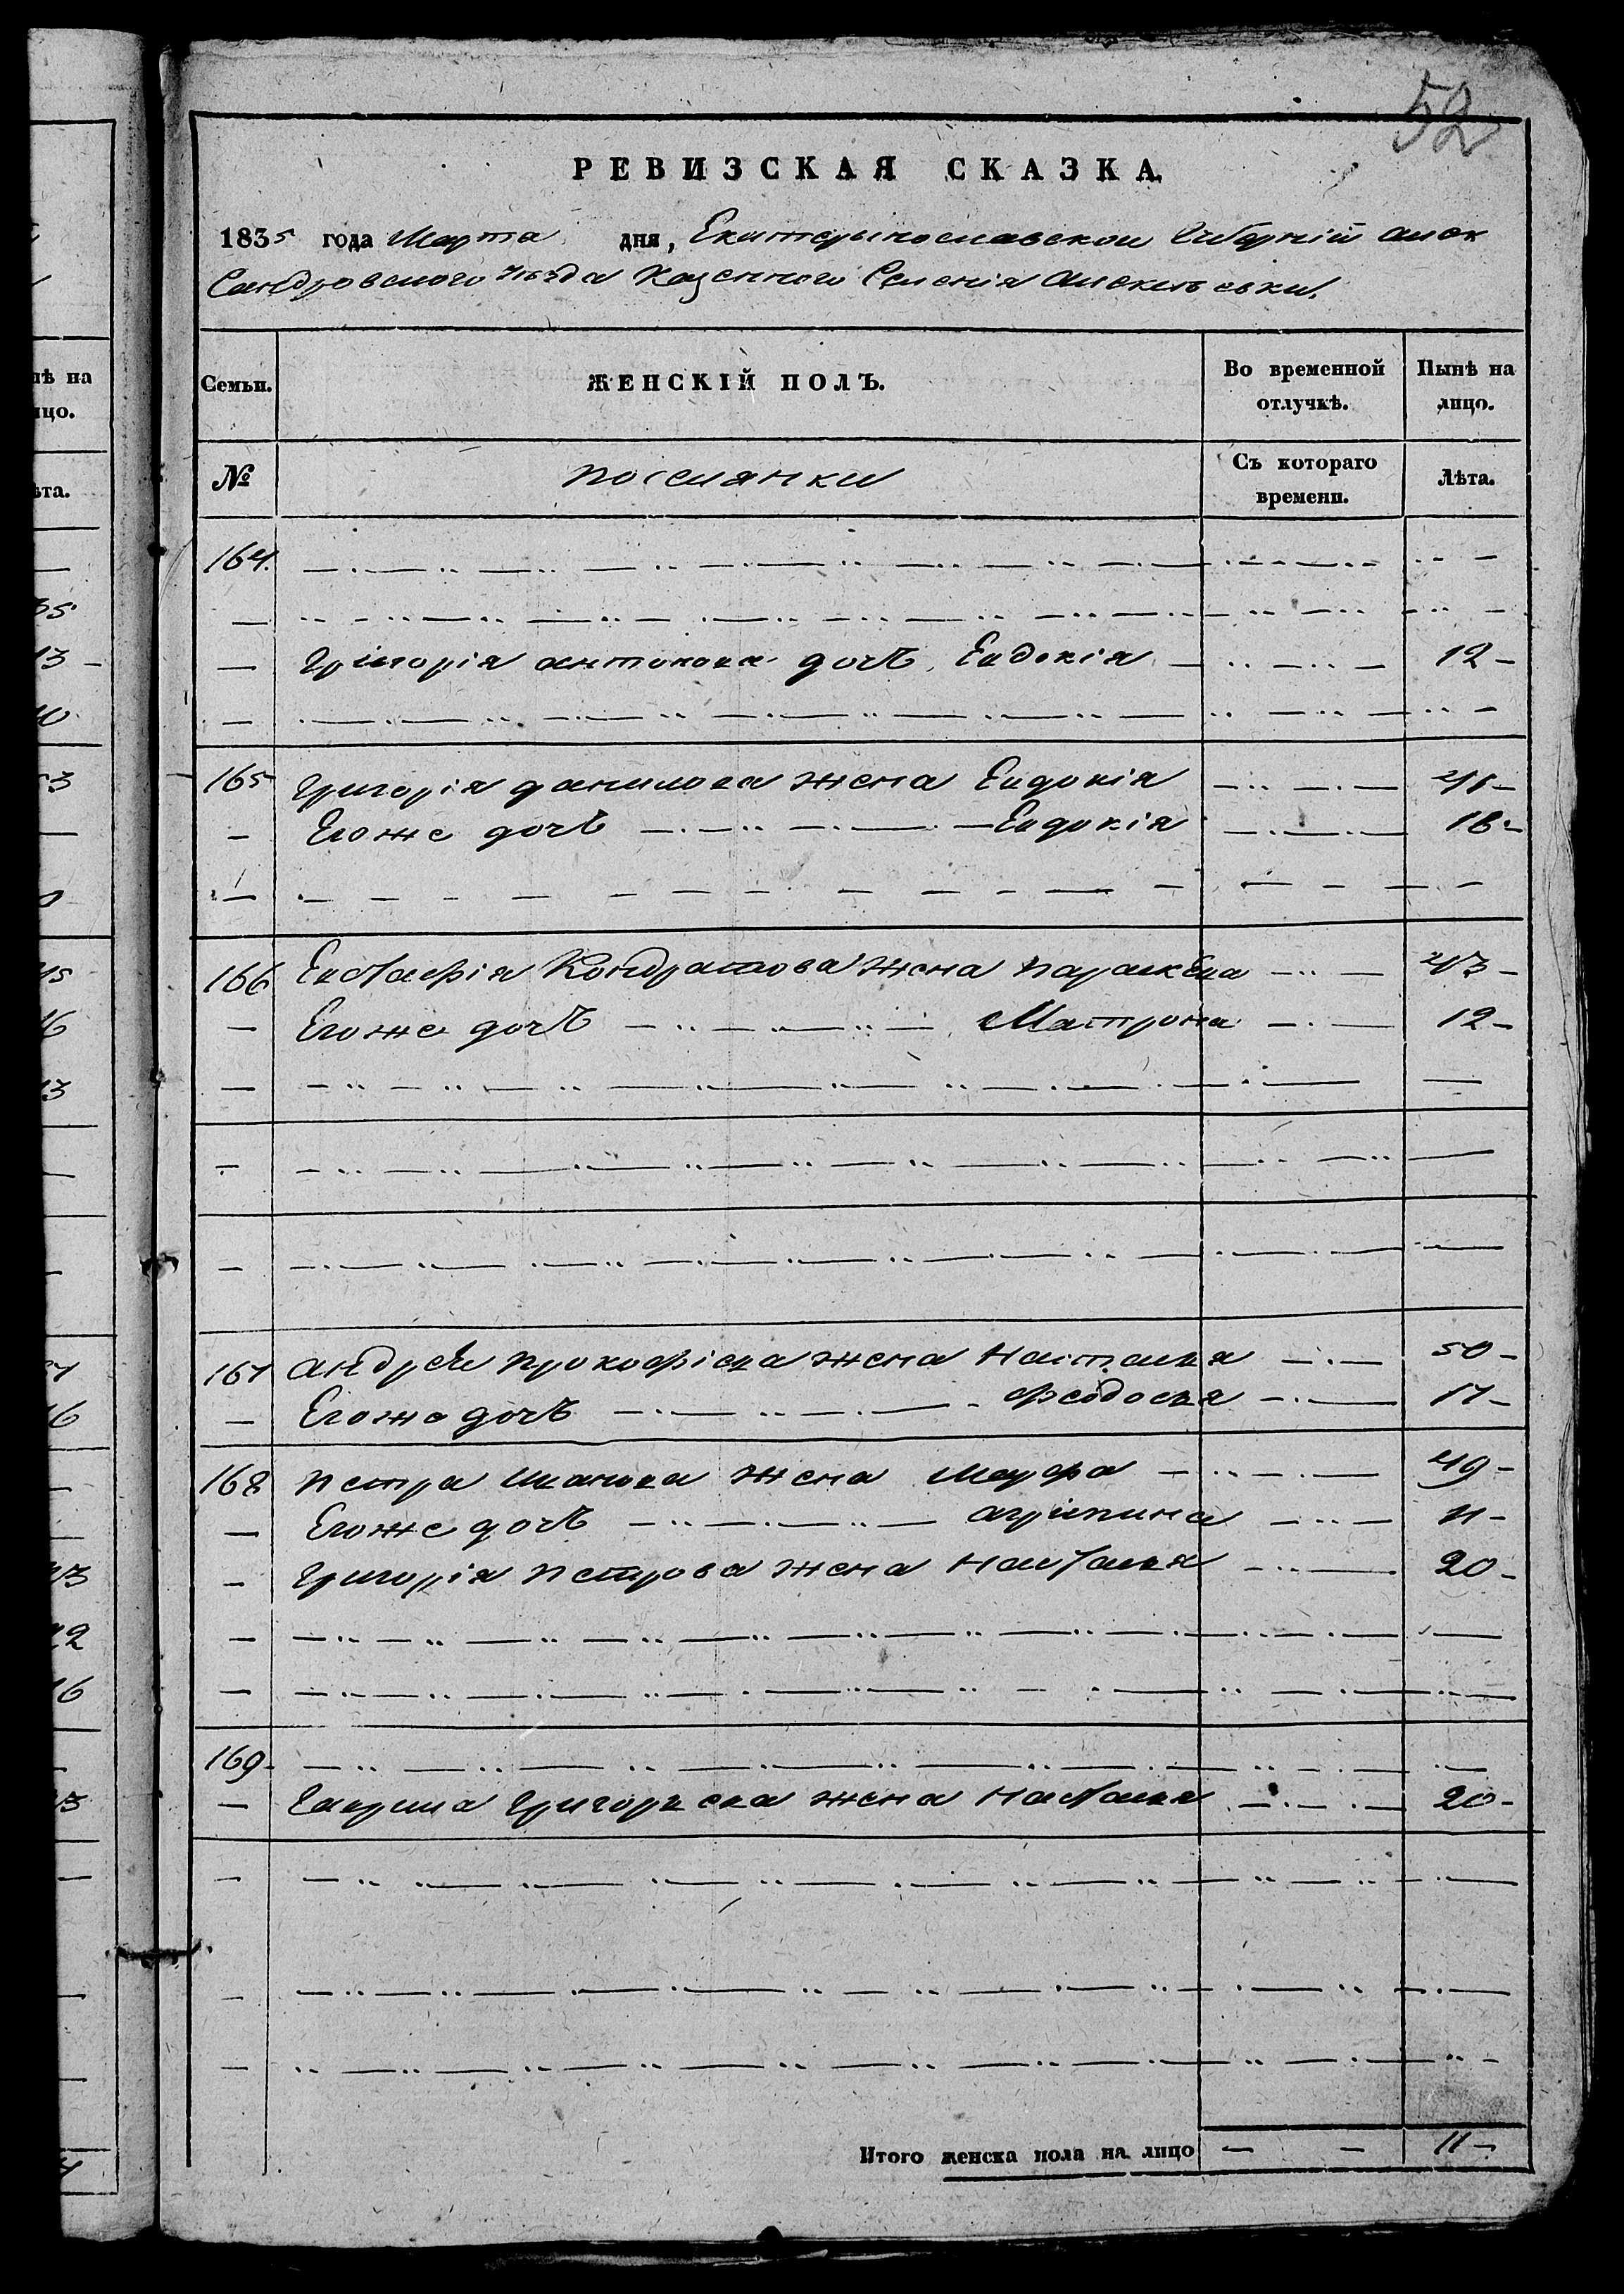 52
РЕВИЗСКАЯ СКАЗКА.
1835 года Марта дня, Екатеринославской Губерніи Алек
сандровского уезда Казенного Селенія Алексеевки.
Семьи. ЖЕНСКІЙ ПОЛЪ. Во временной отлучкѣ. Нынѣ на лицо.
№ поселянки Съ котораго времени. Лѣта.
164.
Григорія антонова дочь Евдокія 12
165 Григорія данилова жена Евдокія 41
Егоже дочь Евдокія 18
166 Евстафія Кондратова жена параскева 43
Егоже дочь Матрона 12
167 андрея прокофіева жена наталья 50
Егоже дочь Феодосья 17
168 петра иванова жена Марфа 49
Егоже дочь агрипина 11
Григорія петрова жена наталья 20
169
Гаврила Григорьева жена наталья 20
Итого женска пола на лицо 11
нѣ на
ицо.
ѣта.
35
13
10
53
45
16
13
16
43
22
16